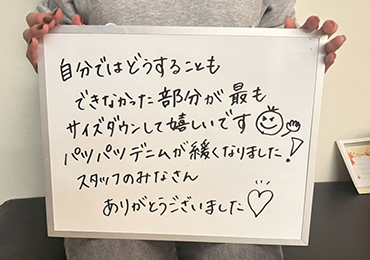 自分ではどうすることも
できなかった部分が最も
サイズダウンして嬉しいです
パツパツデニムが緩くなりました!
スタッフのみなさん
ありがとうございました♡